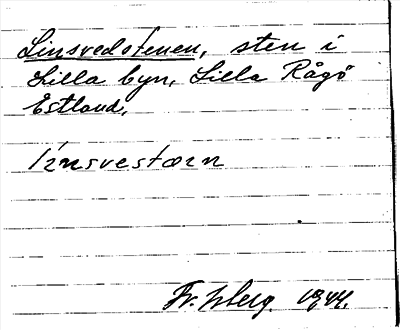 Linsvedstenen, sten i
Lilla byn, Lilla Rågö
Estland.
línsvestærn
1944.